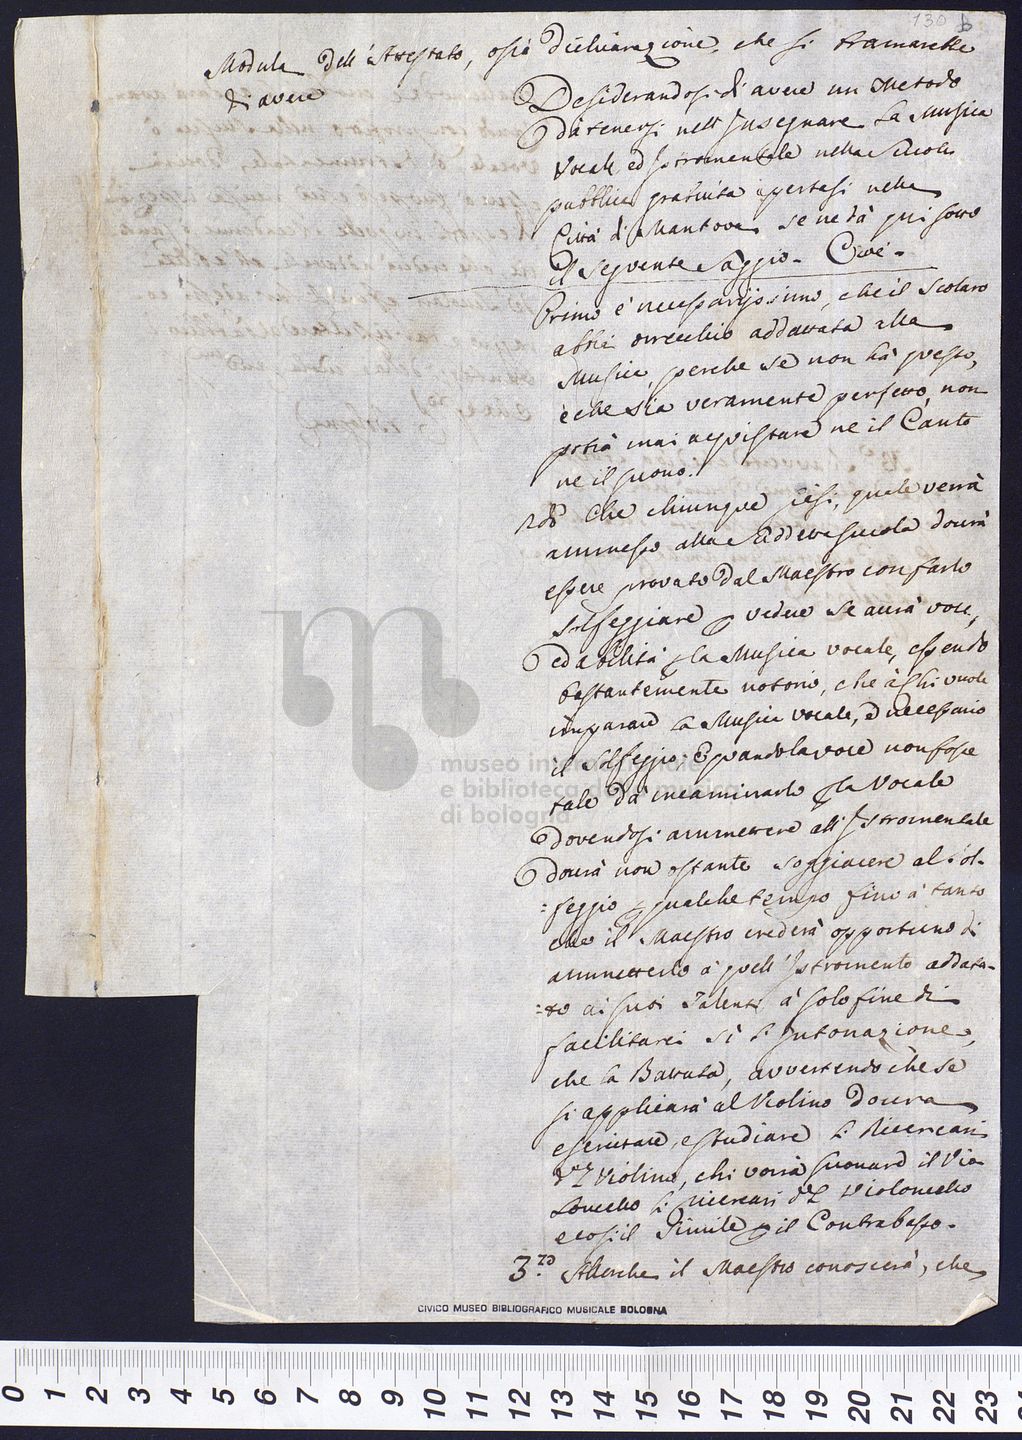 130 b
Modula dell'Attestato, osia dichiarazione, che si bramarebbe
di avere
Desiderandosi di avere un Metodo
da tenersi nell'Insegnare la Musica
Vocale ed Istromentale nella Scuola
pubblica gratuita apertasi nella
Città di Mantova se ne dà qui sotto
il seguente saggio. Cioè.
Primo è necessarijssimo, che il scolaro
abbia orecchio addattata alla
Musica, perche se non hà questo,
e che sia veramente perfetto, non
potrà mai acquistare ne il Canto
ne il suono.
2do Che chiunque siasi, quale verrà
ammesso alla sudetta scuola dovrà
essere provato dal Maestro con farlo
solfeggiare p vedere se avrà voce,
ed abilità p la Musica vocale, essendo
bastantemente notorio, che à chi vuole
imparare la Musica vocale, è necessario
il solfeggio. E quando la voce non fosse
tale da incaminarlo p la Vocale
dovendosi ammettere all'Istromentale
dovrà non ostante soggiacere al sol-
=feggio p qualche tempo fino à tanto
che il Maestro crederà opportuno di
ammetterlo à quell'Istromento addata-
=to ai suoi Talenti à solo fine di
facilitarci sì l'Intonazione,
che la Battuta, avvertendo che se
si applicarà al Violino dovrà
esercitare, e studiare li Ricercari
del Violino, chi vorrà suonare il Vio-
loncello li Ricercari del Violoncello
e così il Simile p il Contrabasso.
3.zo Allorche il Maestro conoscerà, che
museo internazionale
e biblioteca della musica
di bologna
CIVICO MUSEO BIBLIOGRAFICO MUSICALE BOLOGNA
0 1 2 3 4 5 6 7 8 9 10 11 12 13 14 15 16 17 18 19 20 21 22 23